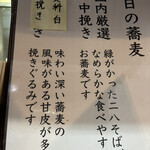 日の蕎麦
緑がかった二八そば
国内厳選
中挽き
なめらかな食べやす
お蕎麦です
挽き さ
味わい深い蕎麦の
風味がある甘皮が多
挽きぐるみです